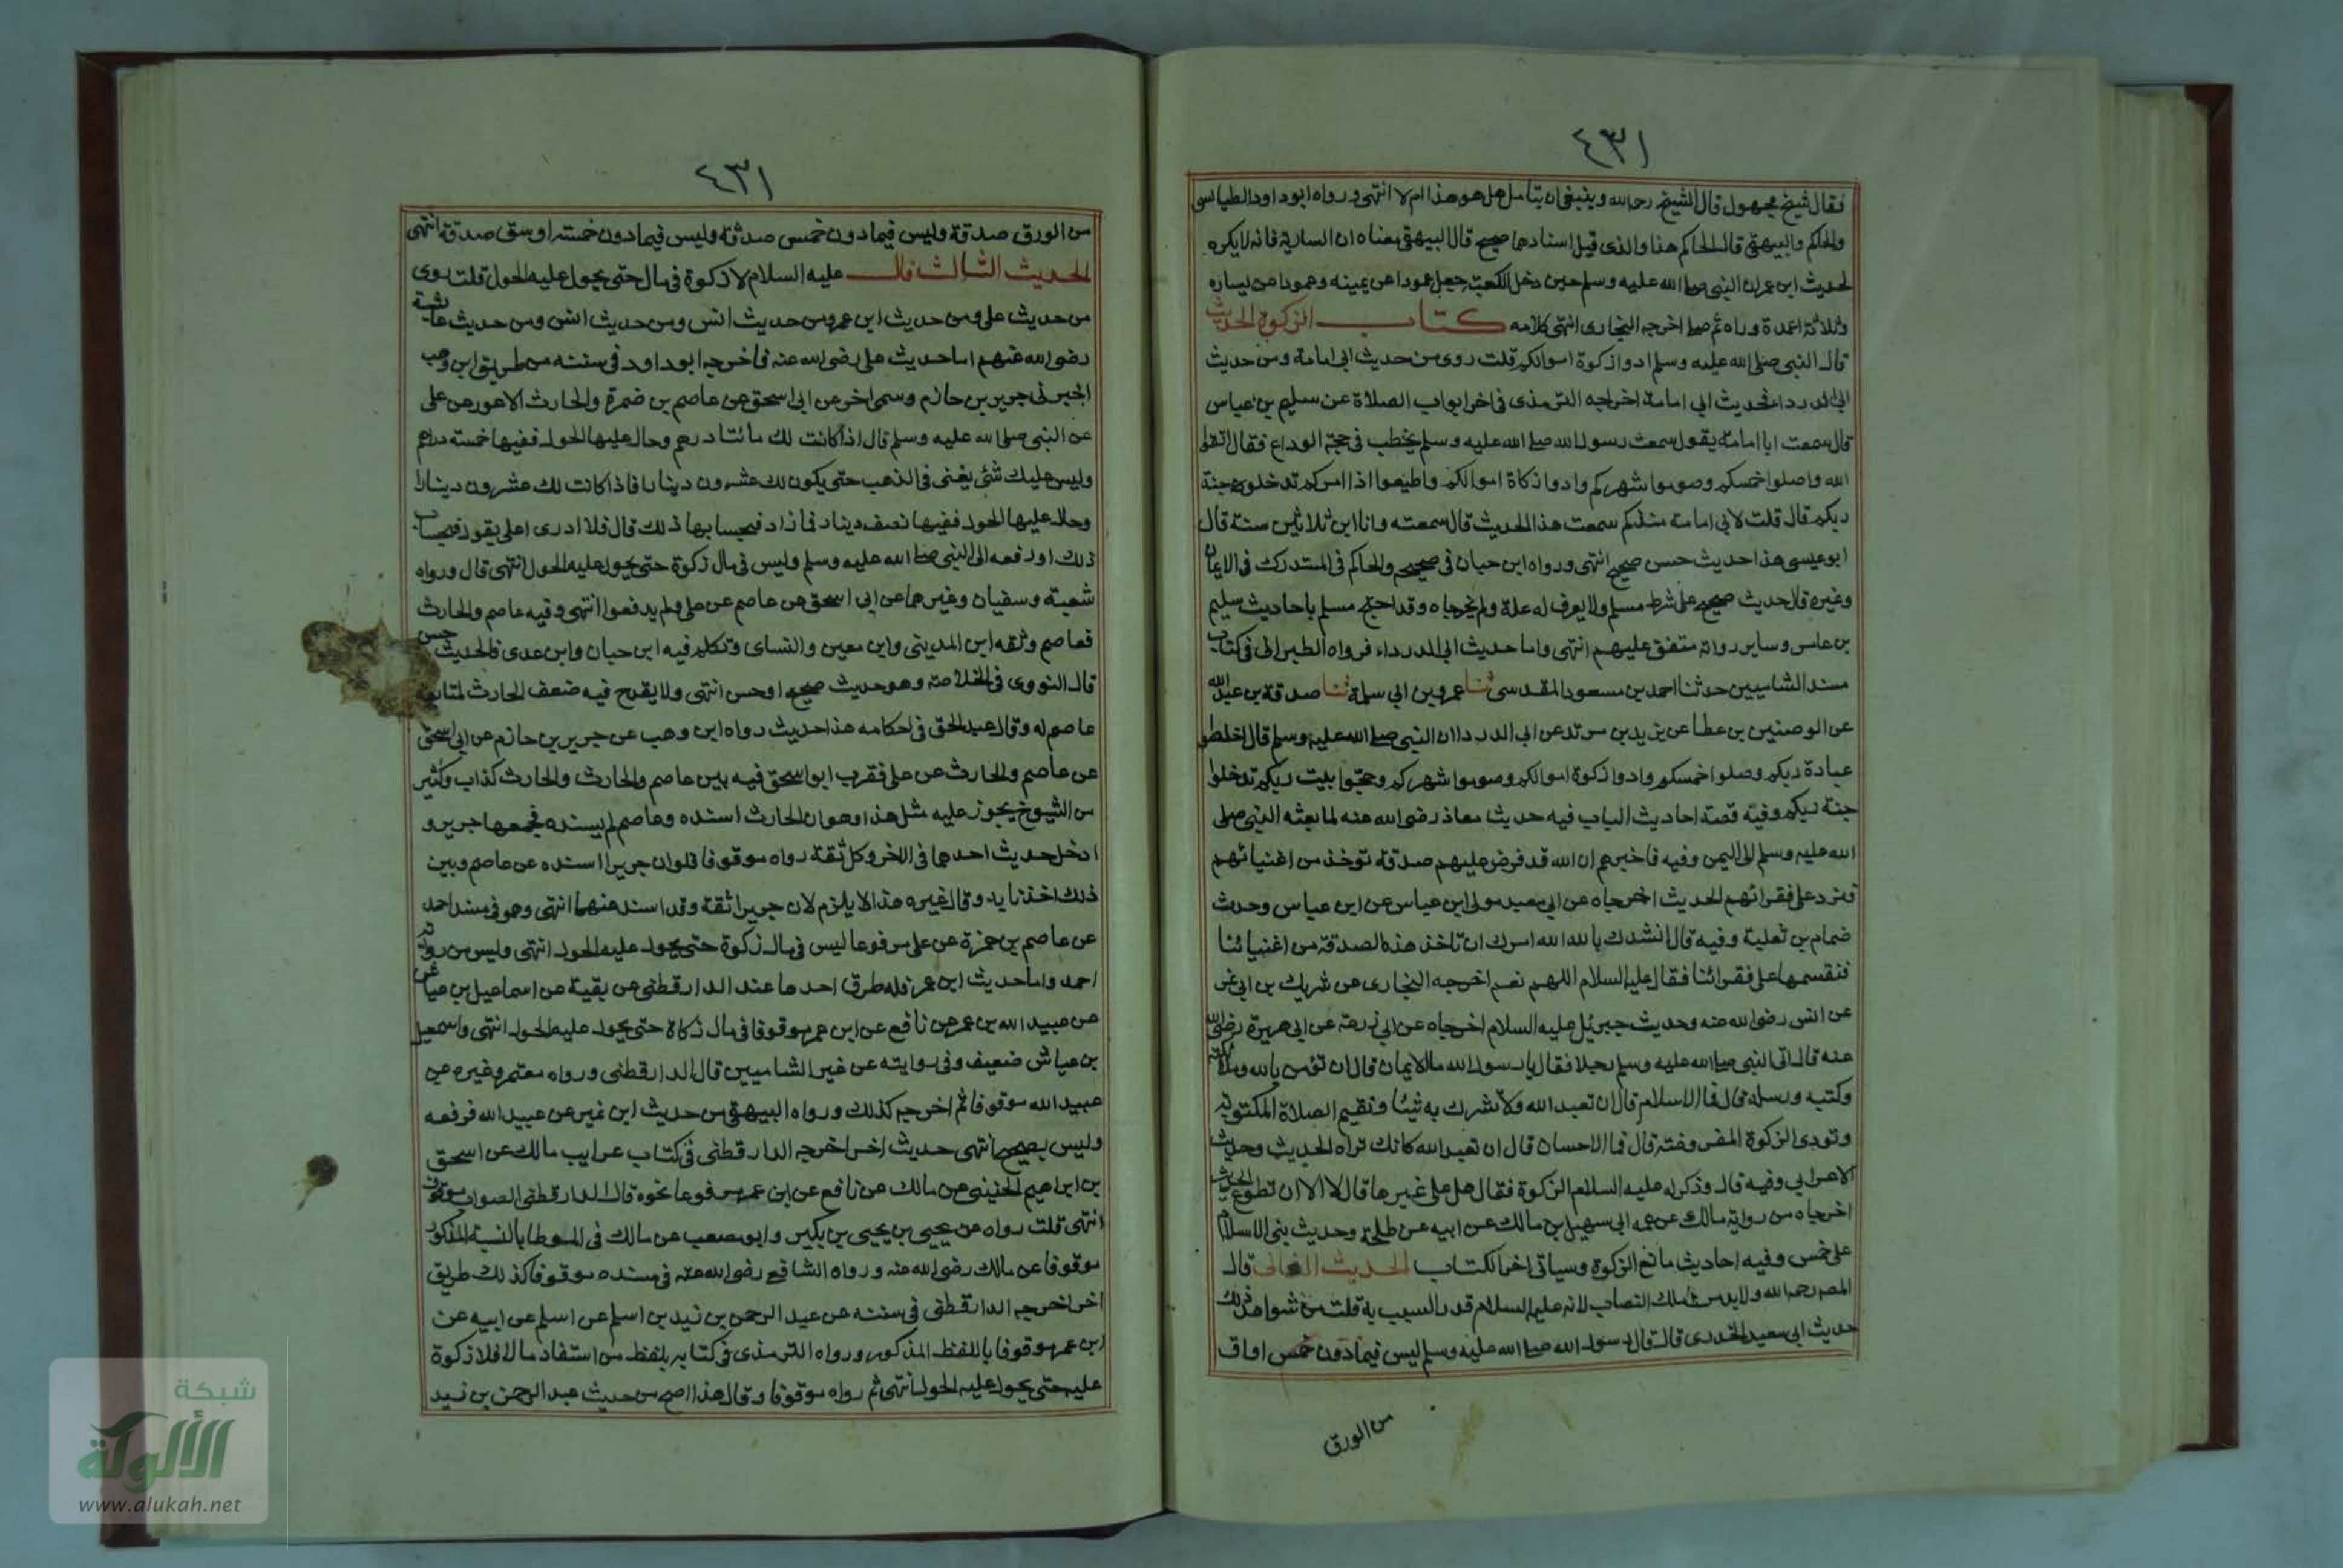 ٤٣١
فقال شيخ مجهول قال الشيخ رحمه الله وينبغى ان يتامل هل هو هذا ام لا انتهى ورواه ابو داود الطيالسى
والحاكم والبيهقى قال الحاكم هنا والذى قبل اسنادهما صحيح قال البيهقى معناه ان السارية فانه لا يكره
لحديث ابن عمر ان النبى صلى الله عليه وسلم حين دخل الكعبة جعل عمودا عن يمينه وعمودا عن يساره
وثلاثة اعمدة وراه ثم صلى اخرجه البخارى انتهى كلامه كتاب الزكوة الحديث
قال النبى صلى الله عليه وسلم ادوا زكوة اموالكم قلت روى من حديث ابى امامة ومن حديث
ابى الدرداء فحديث ابى امامة اخرجه الترمذى فى اخر ابواب الصلاة عن سليم بن عياس
قال سمعت ابا امامة يقول سمعت رسول الله صلى الله عليه وسلم يخطب فى حجة الوداع فقال اتقوا
الله واصلوا خمسكم وصوموا شهركم وادوا زكاة اموالكم واطيعوا اذا امركم تدخلوا جنة
ربكم قال قلت لابى امامة منذكم سمعت هذا الحديث قال سمعته وانا ابن ثلاثين سنة قال
ابو عيسى هذا حديث حسن صحيح انتهى ورواه ابن حبان فى صحيحه والحاكم فى المستدرك فى الايمان
وغيره قال حديث صحيح على شرط مسلم ولا يعرف له علة ولم يخرجاه وقد احتج مسلم باحاديث سليم
بن عامر وساير رواته متفق عليهم انتهى واما حديث ابى الدرداء فرواه الطبرانى فى كتاب
مسند الشاميين حدثنا احمد بن مسعود المقدسى ثنا عمرو بن ابى سلمة ثنا صدقة بن عبد الله
عن الوصنين بن عطا عن يزيد بن مرتد عن ابى الدردا ان النبى صلى الله عليه وسلم قال اخلطوا
عبادة ربكم وصلوا خمسكم وادوا زكوة اموالكم وصوموا شهركم وحجوا بيت ربكم تدخلوا
جنة ربكم وفيه قصة احاديث الباب فيه حديث معاذ رضى الله عنه لما بعثه النبى صلى
الله عليه وسلم الى اليمن وفيه فاخبرهم ان الله قد فرض عليهم صدقة توخذ من اغنيائهم
وترد على فقرائهم الحديث اخرجاه عن ابى معبد مولى ابن عباس عن ابن عباس وحديث
ضمام بن ثعلبة وفيه قال انشدك بالله الله امرك ان تاخذ هذه الصدقة من اغنيائنا
فتقسمها على فقرائنا فقال عليه السلام اللهم نعم اخرجه البخارى عن شريك بن ابى نمر
عن انس رضى الله عنه وحديث جبرئل عليه السلام اخرجاه عن ابى زرعة عن ابى هريرة رضى الله
عنه قال اتى النبى صلى الله عليه وسلم رجلا فقال يا رسول الله ما الايمان قال ان تؤمن بالله وملائكته
وكتبه ورسله قال فما الاسلام قال ان تعبد الله ولا تشرك به شيئا وتقيم الصلاة المكتوبة
وتودى الزكوة المفروضة قال فما الاحسان قال ان تعبد الله كانك تراه الحديث وحديث
الاعرابى وفيه قال وذكر له عليه السلام الزكوة فقال هل على غيرها قال لا الا ان تطوع الحديث
اخرجاه من رواية مالك عن عمه ابى سهيل بن مالك عن ابيه عن طلحة وحديث بنى الاسلام
على خمس وفيه احاديث مانع الزكوة وسياتى اخر الكتاب الحديث الثانى قال
المصـ رحمه الله ولا بد من ملك النصاب لانه عليه السلام قدر السبب به قلت من شواهد ذلك
حديث ابى سعيد الخدرى قال قال رسول الله صلى الله عليه وسلم ليس فيما دون خمس اواق
من الورق
٤٣١
من الورق صدقة وليس فيما دون خمس صدقة وليس فيما دون خمسة اوسق صدقة انتهى
الحديث الثالث قال عليه السلام لا زكوة فى مال حتى يحول عليه الحول قلت روى
من حديث على ومن حديث ابن عمر ومن حديث انس ومن حديث انس ومن حديث عائشة
رضى الله عنهم اما حديث على رضى الله عنه فاخرجه ابو داود فى سننه من طريق ابن وهب
اخبرنى جرير بن حازم وسمى اخر عن ابى اسحق عن عاصم بن ضمرة والحارث الاعور عن على
عن النبى صلى الله عليه وسلم قال اذا كانت لك مائتا درهم وحال عليها الحول ففيها خمسة دراهم
وليس عليك شئ يغنى فى الذهب حتى يكون لك عشرون دينارا فاذا كانت لك عشرون دينارا
وحال عليها الحول ففيها نصف دينار فما زاد فبحسابها ذلك قال فلا ادرى اعلى يقول فبحساب
ذلك او رفعه الى النبى صلى الله عليه وسلم وليس فى مال زكوة حتى يحول عليه الحول انتهى قال ورواه
شعبة وسفيان وغيرهما عن ابى اسحق عن عاصم عن على ولم يدفعوا انتهى وفيه عاصم والحارث
فعاصم وثقه ابن المدينى وابن معين والنساى وتكلم فيه ابن حبان وابن عدى فالحديث حسن
قال النووى فى الخلاصة وهو حديث صحيح او حسن انتهى ولا يقدح فيه ضعف الحارث لمتابعة
عاصم له وقال عبد الحق فى احكامه هذا حديث رواه ابن وهب عن جرير بن حازم عن ابى اسحق
عن عاصم والحارث عن على فقرب ابو اسحق فيه بين عاصم والحارث والحارث كذاب وكثير
من الشيوخ يجوز عليه مثل هذا وهو ان الحارث اسنده وعاصم لم يسنده فجمعها جرير و
ادخل حديث احدهما فى الاخر وكل ثقة رواه موقوفا فلو ان جريرا اسنده عن عاصم وبين
ذلك اخذنا به وقال غيره هذا لا يلزم لان جريرا ثقة وقد اسند عنهما انتهى وهو فى مسند احمد
عن عاصم بن حمزة عن على مرفوعا ليس فى مال زكوة حتى يحول عليه الحول انتهى وليس من رواية
احمد واما حديث ابن عمر فله طرق احدها عند الدارقطنى عن بقية عن اسماعيل بن عياش
عن عبيد الله بن عمر عن نافع عن ابن عمر موقوفا فى مال زكاة حتى يحول عليه الحول انتهى واسمعيل
بن عياش ضعيف وفى روايته عن غير الشاميين قال الدارقطنى ورواه معتمر وغيره عن
عبيد الله موقوفا ثم اخرجه كذلك ورواه البيهقى من حديث ابن نمير عن عبيد الله فرفعه
وليس بصحيح انتهى حديث اخر اخرجه الدارقطنى فى كتاب غرايب مالك عن اسحق
بن ابراهيم الحنينى عن مالك عن نافع عن ابن عمر مرفوعا نحوه قال الدارقطنى الصواب موقوف
انتهى قلت رواه عن يحيى بن يحيى بن بكير وابو مصعب عن مالك فى الموطا بالنسبة المذكور
موقوفا عن مالك رضى الله عنه ورواه الشافعى رضى الله عنه فى مسنده موقوفا كذلك طريق
اخر اخرجه الدارقطنى فى سننه عن عبد الرحمن بن زيد بن اسلم عن اسلم عن ابيه عن
ابن عمر موقوفا باللفظ المذكور ورواه الترمذى فى كتابه بلفظ من استفاد مالا فلا زكوة
عليه حتى يحول عليه الحول انتهى ثم رواه موقوفا وقال هذا اصح من حديث عبد الرحمن بن زيد
شبكة
الألوكة
www.alukah.net